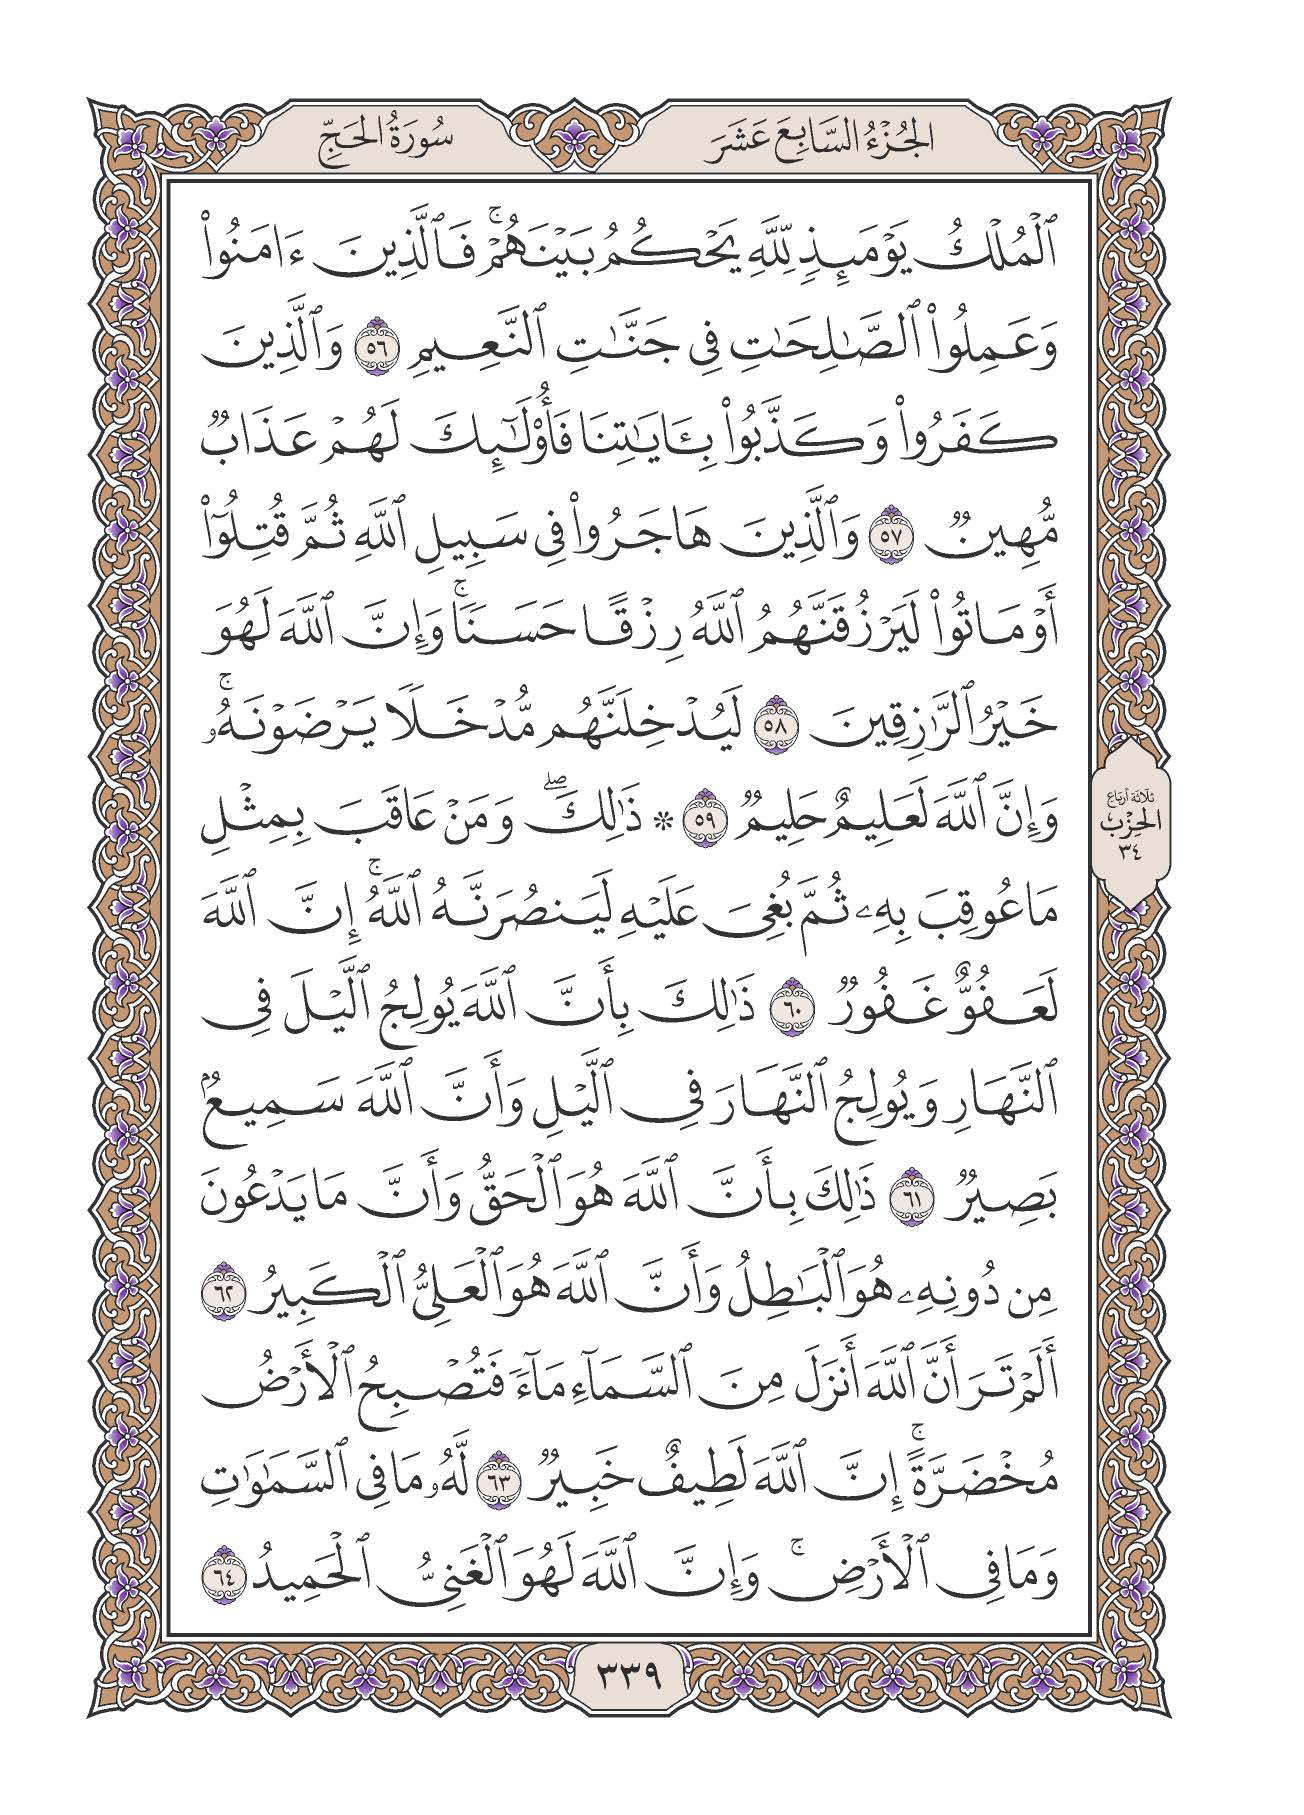 الجُزْءُ السَّابِعَ عَشَرَ
سُورَةُ الحَجِّ
ٱلۡمُلۡكُ يَوۡمَئِذٖ لِّلَّهِ يَحۡكُمُ بَيۡنَهُمۡۚ فَٱلَّذِينَ ءَامَنُواْ
وَعَمِلُواْ ٱلصَّٰلِحَٰتِ فِي جَنَّٰتِ ٱلنَّعِيمِ ٥٦ وَٱلَّذِينَ
كَفَرُواْ وَكَذَّبُواْ بِـَٔايَٰتِنَا فَأُوْلَٰٓئِكَ لَهُمۡ عَذَابٞ
مُّهِينٞ ٥٧ وَٱلَّذِينَ هَاجَرُواْ فِي سَبِيلِ ٱللَّهِ ثُمَّ قُتِلُوٓاْ
أَوۡ مَاتُواْ لَيَرۡزُقَنَّهُمُ ٱللَّهُ رِزۡقًا حَسَنٗاۚ وَإِنَّ ٱللَّهَ لَهُوَ
خَيۡرُ ٱلرَّٰزِقِينَ ٥٨ لَيُدۡخِلَنَّهُم مُّدۡخَلٗا يَرۡضَوۡنَهُۥۚ
وَإِنَّ ٱللَّهَ لَعَلِيمٌ حَلِيمٞ ٥٩ * ذَٰلِكَۖ وَمَنۡ عَاقَبَ بِمِثۡلِ
مَا عُوقِبَ بِهِۦ ثُمَّ بُغِيَ عَلَيۡهِ لَيَنصُرَنَّهُ ٱللَّهُۚ إِنَّ ٱللَّهَ
لَعَفُوٌّ غَفُورٞ ٦٠ ذَٰلِكَ بِأَنَّ ٱللَّهَ يُولِجُ ٱلَّيۡلَ فِي
ٱلنَّهَارِ وَيُولِجُ ٱلنَّهَارَ فِي ٱلَّيۡلِ وَأَنَّ ٱللَّهَ سَمِيعُۢ
بَصِيرٞ ٦١ ذَٰلِكَ بِأَنَّ ٱللَّهَ هُوَ ٱلۡحَقُّ وَأَنَّ مَا يَدۡعُونَ
مِن دُونِهِۦ هُوَ ٱلۡبَٰطِلُ وَأَنَّ ٱللَّهَ هُوَ ٱلۡعَلِيُّ ٱلۡكَبِيرُ ٦٢
أَلَمۡ تَرَ أَنَّ ٱللَّهَ أَنزَلَ مِنَ ٱلسَّمَآءِ مَآءٗ فَتُصۡبِحُ ٱلۡأَرۡضُ
مُخۡضَرَّةًۚ إِنَّ ٱللَّهَ لَطِيفٌ خَبِيرٞ ٦٣ لَّهُۥ مَا فِي ٱلسَّمَٰوَٰتِ
وَمَا فِي ٱلۡأَرۡضِۚ وَإِنَّ ٱللَّهَ لَهُوَ ٱلۡغَنِيُّ ٱلۡحَمِيدُ ٦٤
ثلاثة أرباع
الحِزْبُ
٣٤
٣٣٩